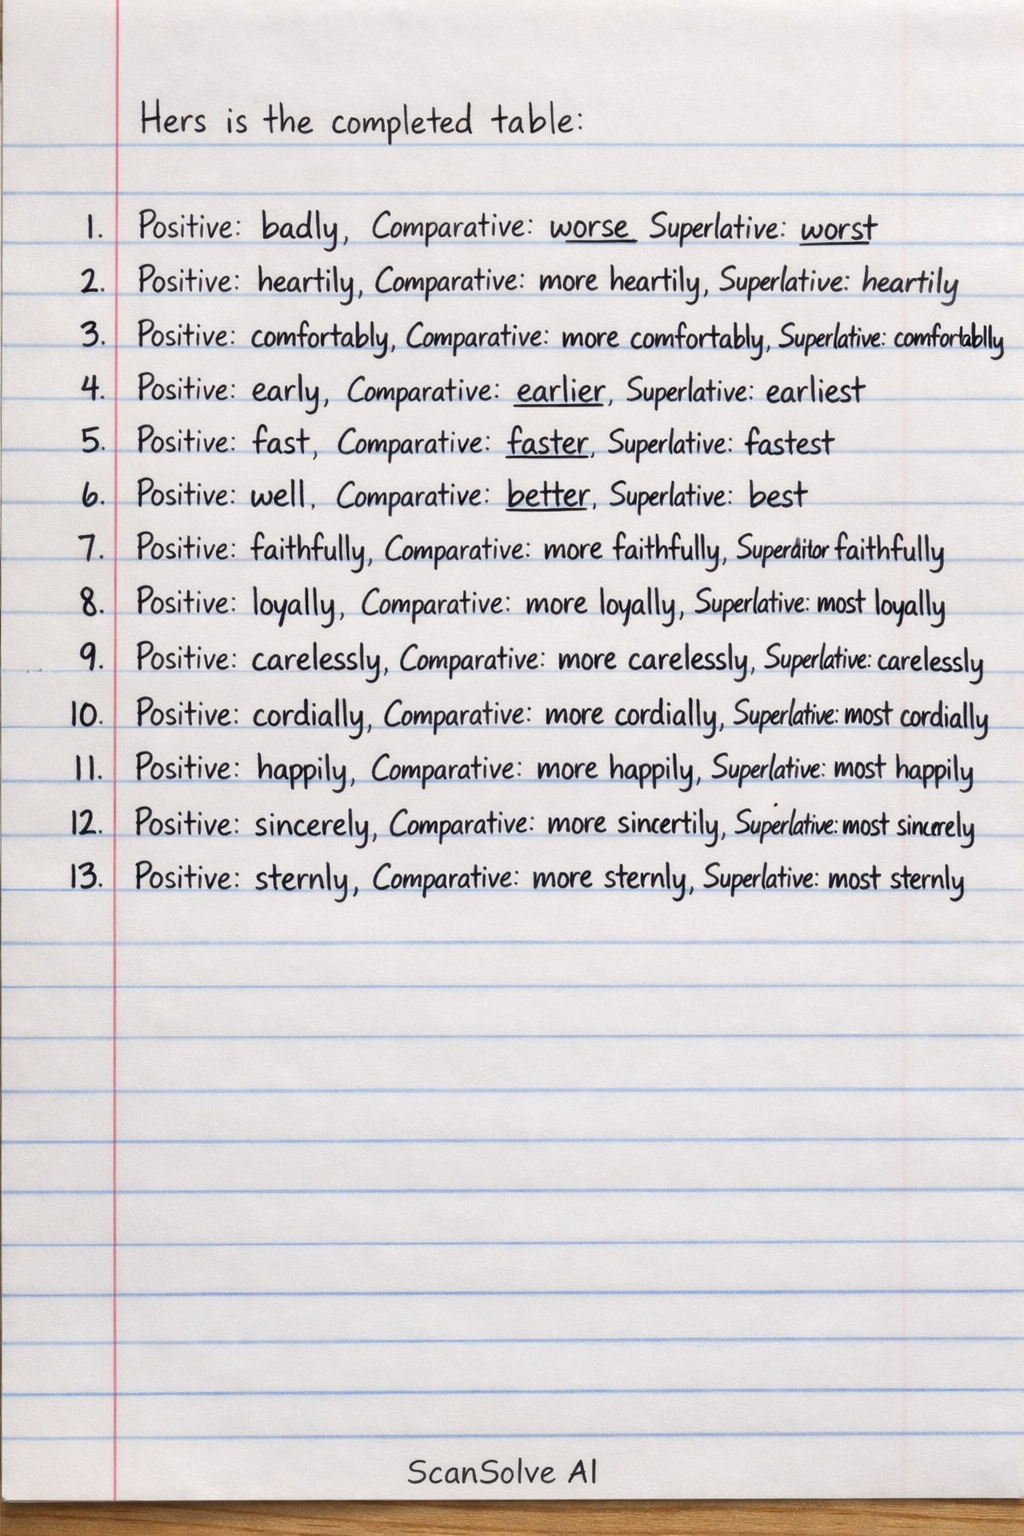 Hers is the completed table:
1. Positive: badly, Comparative: worse Superlative: worst
2. Positive: heartily, Comparative: more heartily, Superlative: heartily
3. Positive: comfortably, Comparative: more comfortably, Superlative: comfortablly
4. Positive: early, Comparative: earlier, Superlative: earliest
5. Positive: fast, Comparative: faster, Superlative: fastest
6. Positive: well, Comparative: better, Superlative: best
7. Positive: faithfully, Comparative: more faithfully, faithfully
8. Positive: loyally, Comparative: more loyally, Superlative: most loyally
9. Positive: carelessly, Comparative: more carelessly, Superlative: carelessly
10. Positive: cordially, Comparative: more cordially, Superlative: most cordially
11. Positive: happily, Comparative: more happily, Superlative: most happily
12. Positive: sincerely, Comparative: more sincertily, Superlative: most
13. Positive: sternly, Comparative: more sternly, Superlative: most sternly
ScanSolve AI